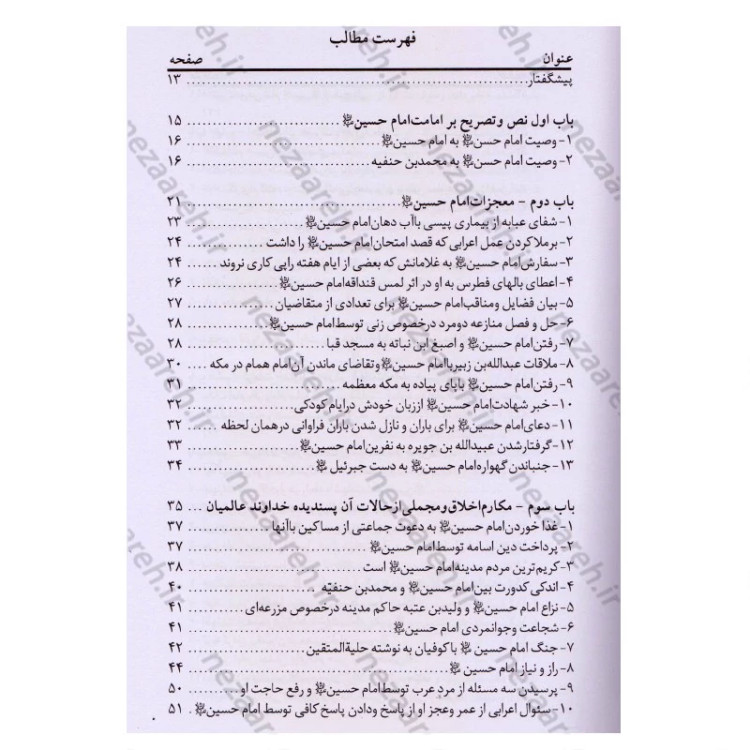 فهرست مطالب
عنوان صفحه
پیشگفتار ۱۳
باب اول نص وتصریح بر امامت امام حسین ﷺ ۱۵
۱- وصیت امام حسن ﷺ به امام حسین ﷺ ۱۶
۲- وصیت امام حسن ﷺ به محمدبن حنفیه ۱۶
باب دوم - معجزات امام حسین ﷺ ۲۱
۱- شفای عبابه از بیماری پیسی باآب دهان امام حسین ﷺ ۲۳
۲- برملاکردن عمل اعرابی که قصد امتحان امام حسین ﷺ را داشت ۲۴
۳- سفارش امام حسین ﷺ به غلامانش که بعضی از ایام هفته راپی کاری نروند ۲۴
۴- اعطای بالهای فطرس به او در اثر لمس قنداقه امام حسین ﷺ ۲۶
۵- بیان فضایل ومناقب امام حسین ﷺ برای تعدادی از متقاضیان ۲۷
۶- حل و فصل منازعه دومرد درخصوص زنی توسط امام حسین ﷺ ۲۸
۷- رفتن امام حسین ﷺ و اصبغ ابن نباته به مسجد قبا ۲۸
۸- ملاقات عبدالله بن زبیرباامام حسین ﷺ وتقاضای ماندن آن امام همام در مکه ۳۰
۹- رفتن امام حسین ﷺ باپای پیاده به مکه معظمه ۳۱
۱۰- خبر شهادت امام حسین ﷺ اززبان خودش درایام کودکی ۳۲
۱۱- دعای امام حسین ﷺ برای باران و نازل شدن باران فراوانی درهمان لحظه ۳۲
۱۲- گرفتارشدن عبیدالله بن جویره به نفرین امام حسین ﷺ ۳۳
۱۳- جنباندن گهواره امام حسین ﷺ به دست جبرئیل ۳۴
باب سوم - مکارم اخلاق ومجملی ازحالات آن پسندیده خداوند عالمیان ۳۵
۱- غذا خوردن امام حسین ﷺ به دعوت جماعتی از مساکین باآنها ۳۷
۲- پرداخت دین اسامه توسط امام حسین ﷺ ۳۷
۳- کریم ترین مردم مدینه امام حسین ﷺ است ۳۸
۴- اندکی کدورت بین امام حسین ﷺ و محمدبن حنفیّه ۴۰
۵- نزاع امام حسین ﷺ و ولیدبن عتبه حاکم مدینه درخصوص مزرعه‌ای ۴۱
۶- شجاعت وجوانمردی امام حسین ﷺ ۴۱
۷- جنگ امام حسین ﷺ باکوفیان به نوشته حلیةالمتقین ۴۲
۸- راز و نیاز امام حسین ﷺ ۴۴
۹- پرسیدن سه مسئله از مرد عرب توسط امام حسین ﷺ و رفع حاجت او ۵۰
۱۰- سئوال اعرابی از عمر وعجز او از پاسخ ودادن پاسخ کافی توسط امام حسین ﷺ ۵۱
nezaareh.ir